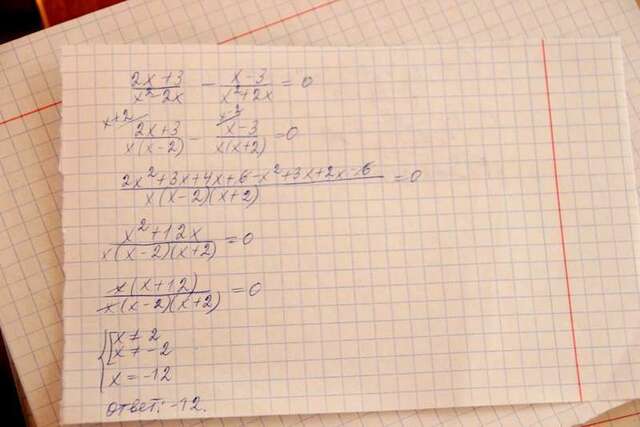 (2x+3)/(x²-2x) - (x-3)/(x²+2x) = 0
x+2/ (2x+3)/(x(x-2)) - x-2/ (x-3)/(x(x+2)) = 0
(2x²+3x+4x+6-x²+3x+2x-6)/(x(x-2)(x+2)) = 0
(x²+12x)/(x(x-2)(x+2)) = 0
(x(x+12))/(x(x-2)(x+2)) = 0
{[x≠2
x≠-2
x=-12
ответ: -12.